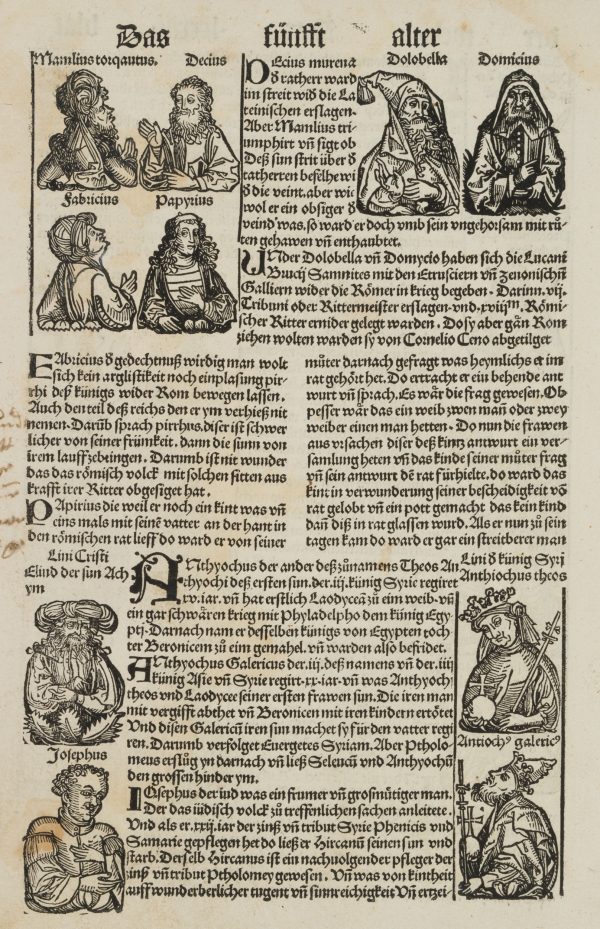 Das fünfft alter
Mamlius torqautus. Decius
Dolobella Domicius
Fabricius Papyrius
DEcius murena
d ratherr ward
im streit wid̄ die La
teinischen erslagen.
Aber Mamlius tri-
umphirt vn̄ sigt ob
Deß sun strit über d
ratherren beselhe wi
d die veint. aber wie
wol er ein obsiger d
veind was. so ward er doch vmb sein vngehorsam mit rů-
ten gehawen vn̄ enthaubtet.
UNder Dolobella vn̄ Domycio haben sich die Lucani
Brucij Samnites mit den Etrusciern vn̄ zenonischn̄
Galliern wider die Römer in krieg begeben. Darinn. vij.
Tribuni oder Rittermeister erslagen vnd. xviijm. Römi-
scher Ritter ernider gelegt warden. Do sy aber gān Rom
ziehen wolten warden sy von Cornelio Ceno abgetilget
FAbricius d gedechtnuß wirdig man wolt
sich kein arglistikeit noch einplasung pir-
rhi deß künigs wider Rom bewegen lassen.
Auch den teil deß reichs den er ym verhieß nit
nemen. Darūb sprach pirrhus. diser ist schwer
licher von seiner frümkeit. dann die sunn von
irem lauff zebeingen. Darumb ist nit wunder
das das römisch volck mit solchen sitten aus
krafft irer Ritter obgesiget hat.
PApirius die weil er noch ein kint was vn̄
eins mals mit seinē vatter an der hant in
den römischen rat lieff do ward er von seiner
můter darnach gefragt was heymlichs er im
rat gehört het. Do ertracht er ein behende ant
wurt vn̄ sprach. Es wär die frag gewesen. Ob
pesser wär das ein weib zwen man̄ oder zwey
weiber einen man hetten. Do nun die frawen
aus vrsachen diser deß kintz antwurt ein ver-
samlung heten vn̄ das kinde seiner můter frag
vn̄ sein antwurt dē rat fürhielte. do ward das
kint in verwunderung seiner bescheidigkeit vō
rat gelobt vn̄ ein pott gemacht das kein kind
dan̄ diß in rat glassen wurd. Als er nun zu sein
tagen kam do ward er gar ein streitberer man
Lini Cristi
Elind der sun Ach
ym
Josephus
ANthyochus der ander deß zůnamens Theos An
thyochi deß ersten sun. der. iij. künig Syrie regiret
xv. iar. vn̄ hat erstlich Laodyceā zů eim weib. vn̄
ein gar schwären krieg mit Phyladelpho dem künig Egy
ptij. Darnach nam er desselben künigs von Egypten toch
ter Beronicem zů eim gemahel. vn̄ warden also befridet.
ANthyochus Galericus der. iij. deß namens vn̄ der. iiij
künig Asie vn̄ Syrie regirt. xx. iar. vn̄ was Anthyoch9
theos vnd Laodycee seiner ersten frawen sun. Die iren man
mit vergifft abthet vn̄ Beronicen mit iren kindern ertötet
Vnd disen Galericū iren sun machet sy für den vatter regi
ren. Darumb verfolget Euergetes Syriam. Aber Ptholo-
meus erslůg yn darnach vn̄ ließ Seleucū vnd Anthyochū
den grossen hinder ym.
IOsephus der iud was ein frumer vn̄ grosmütiger man.
Der das iüdisch volck zů treffenlichen sachen anleitete.
Vnd als er. xxij. iar der zinß vn̄ tribut Syrie Phenicis vnd
Samarie gepflegen het do ließ er Hircanū seinen sun vnd
starb. Derselb Hircanus ist ein nachuolgender pfleger der
zinß vn̄ tribut Ptholomey gewesen. Vn̄ was von kintheit
auff wunderberlicher tugent vn̄ sinnreichigkeit Vn̄ ertzei-
Lini d künig Syrj
Anthiochus theos
Antioch9 galeric9